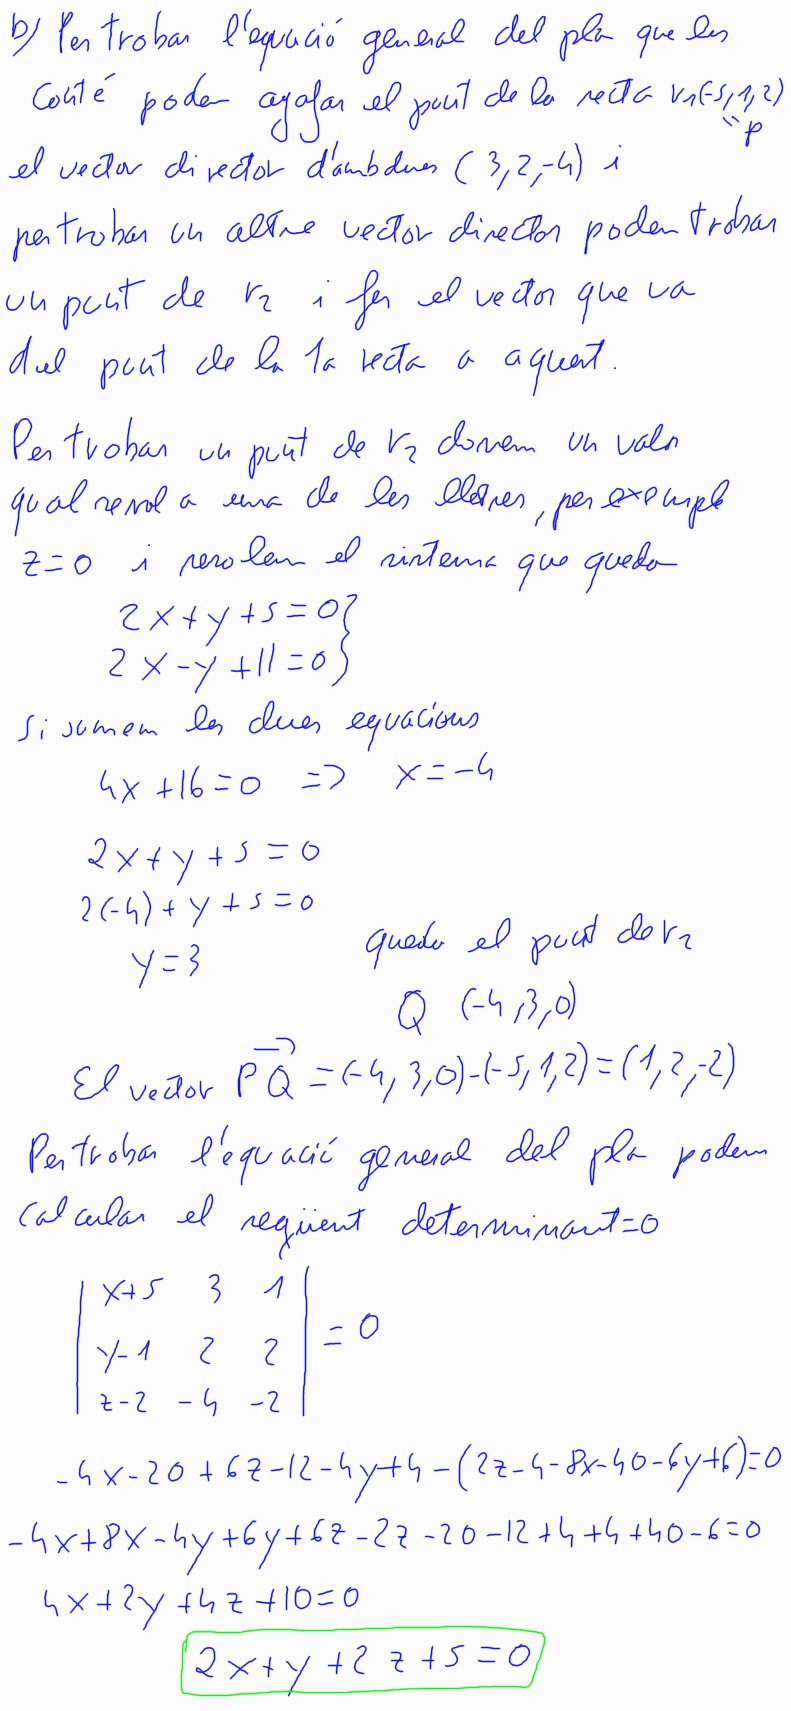 b) Per trobar l'equació general del pla que les
conté podem agafar el punt de la recta r₁(-5,1,2)
= P
el vector director d'ambdues (3,2,-4) i
per trobar un altre vector director podem trobar
un punt de r₂ i fer el vector que va
del punt de la 1a recta a aquest.
Per trobar un punt de r₂ donem un valor
qualsevol a una de les lletres, per exemple
z=0 i resolem el sistema que queda
2x+y+5=0}
2x-y+11=0}
Si sumem les dues equacions
4x+16=0 => x=-4
2x+y+5=0
2(-4)+y+5=0
y=3
queda el punt de r₂
Q (-4,3,0)
El vector PQ⃗ = (-4,3,0)-(-5,1,2)=(1,2,-2)
Per trobar l'equació general del pla podem
calcular el següent determinant=0
| x+5 3 1 |
| y-1 2 2 | = 0
| z-2 -4 -2 |
-4x-20+6z-12-4y+4-(2z-4-8x-40-6y+6)=0
-4x+8x-4y+6y+6z-2z-20-12+4+4+40-6=0
4x+2y+4z+10=0
2x+y+2z+5=0